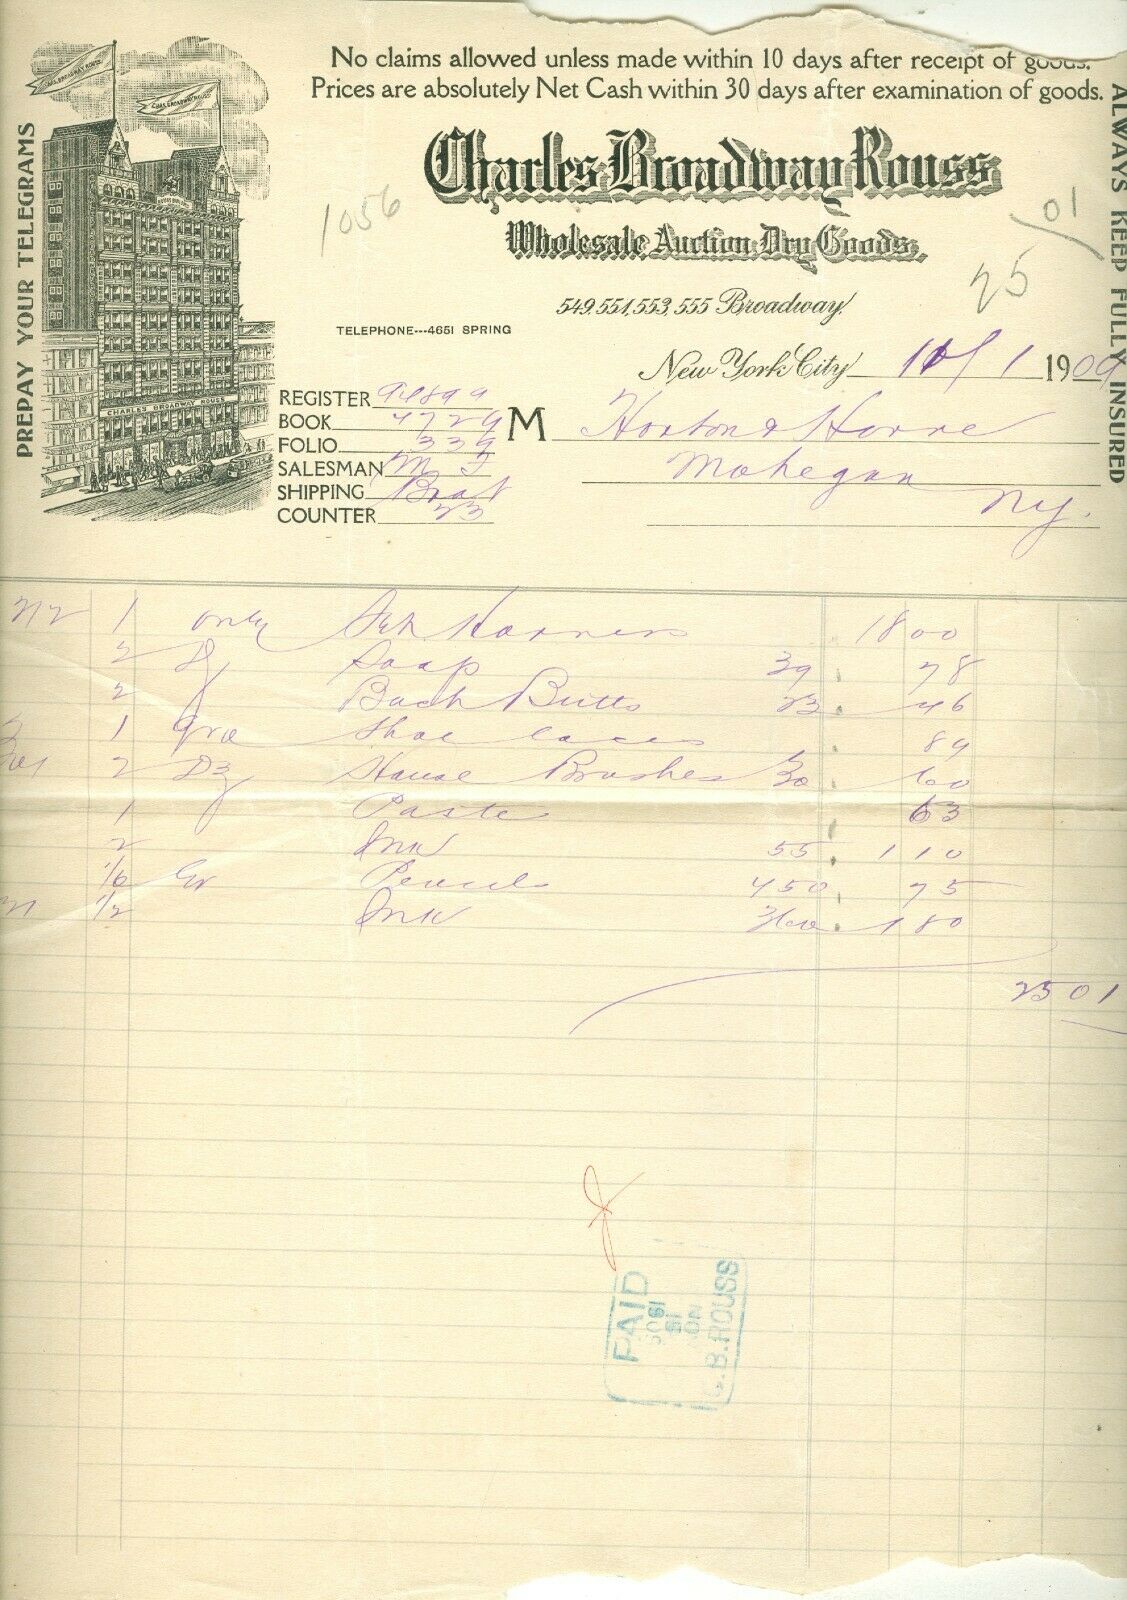 No claims allowed unless made within 10 days after receipt of goods.
Prices are absolutely Net Cash within 30 days after examination of goods.
PREPAY YOUR TELEGRAMS
ALWAYS KEEP FULLY INSURED
CHAS. BROADWAY ROUSS
CHAS. BROADWAY ROUSS
CHARLES BROADWAY ROUSS
Charles Broadway Rouss
Wholesale Auction Dry Goods,
1056
25 01
549, 551, 553, 555 Broadway.
TELEPHONE---4651 SPRING
New York City 11/1 1909
REGISTER 94899
BOOK 4729
FOLIO 339
SALESMAN M
SHIPPING Boat
COUNTER 23
M Horton &
Mohegan
NY.
1 only Set Harness 18 00
2 Dz Soap 39 78
2 Bach Butts 23 46
1 gro Shoe laces 89
2 Dz House Brushes 30 60
1 Paste 63
2 Ink 55 1 10
1/6 Gr Pencils 450 75
1/2 Ink 360 1 80
25 01
PAID
NOV
C. B. ROUSS